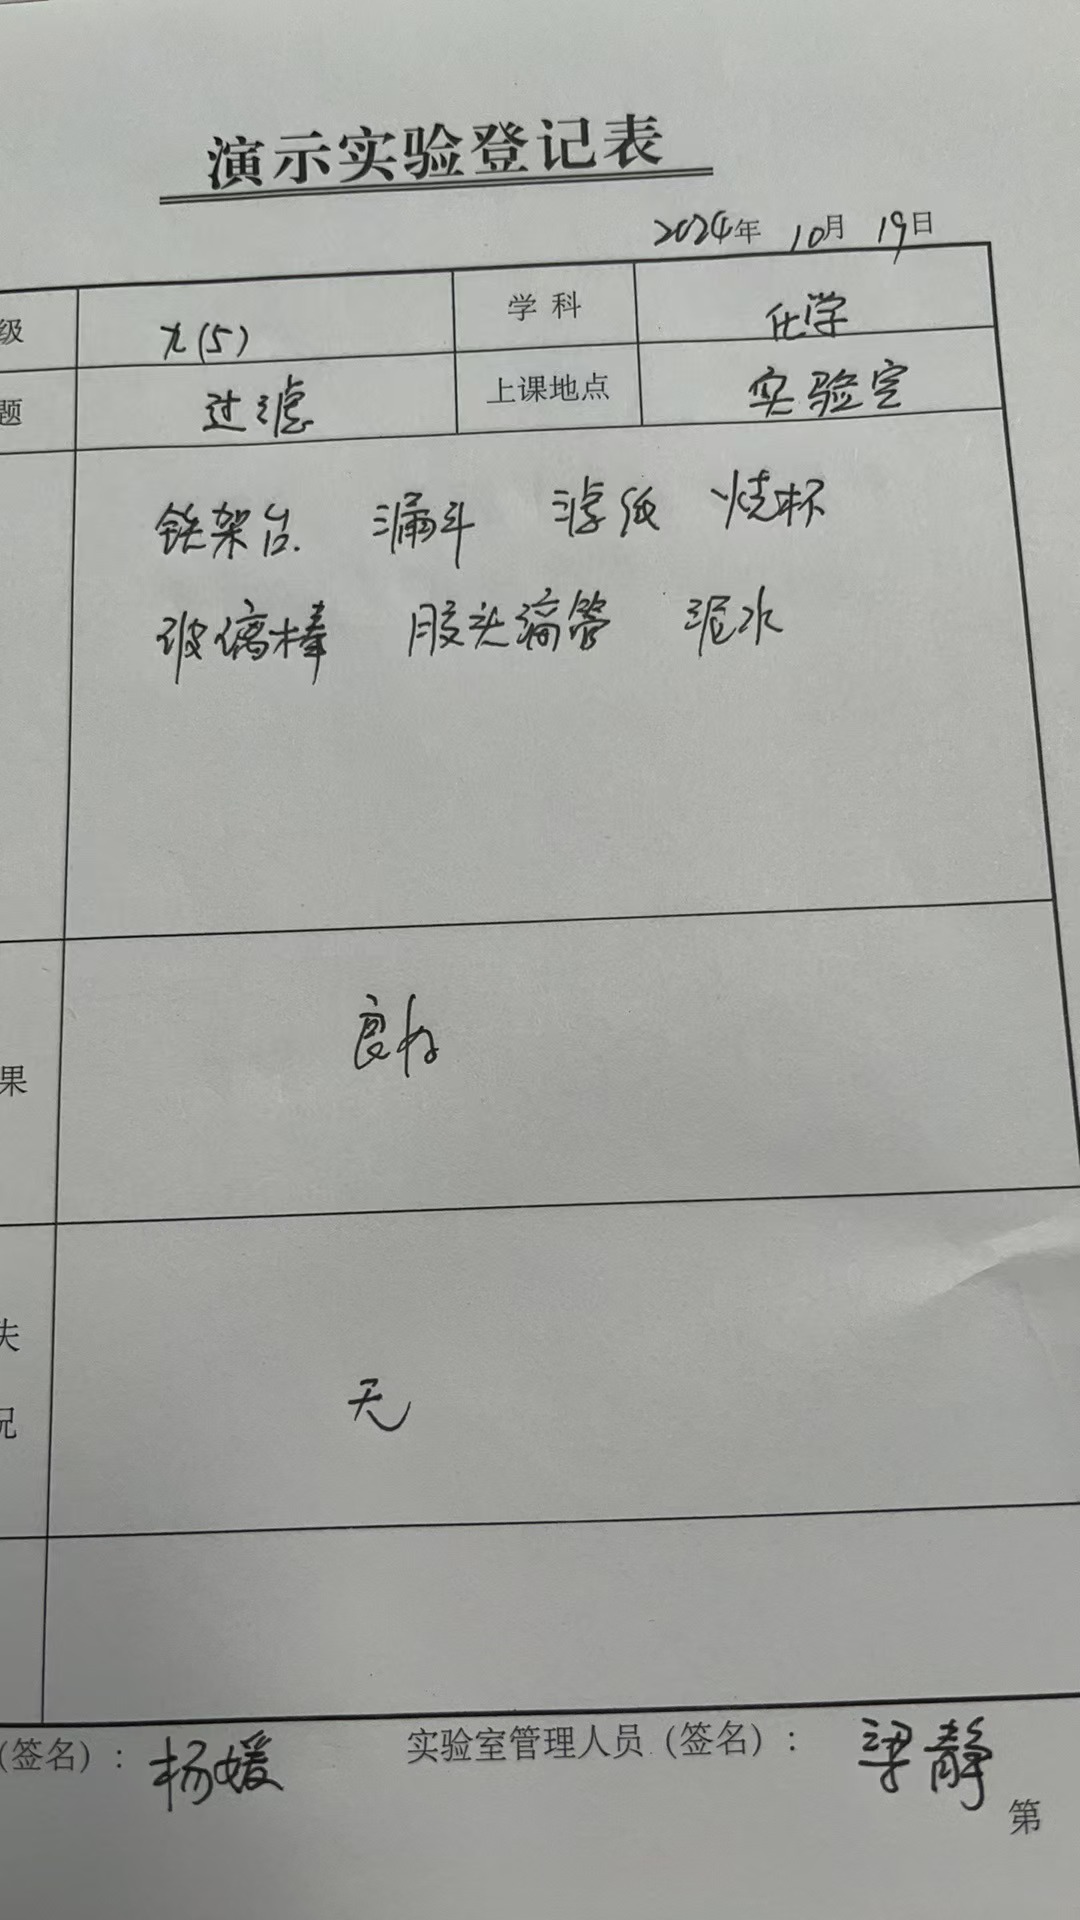 演示实验登记表
2024年 10月 19日
级 九(5) 学科 化学
题 过滤 上课地点 实验室
铁架台 漏斗 滤纸 烧杯
玻璃棒 胶头滴管 泥水
果 良好
失
况
无
(签名): 杨媛 实验室管理人员(签名): 梁静
第